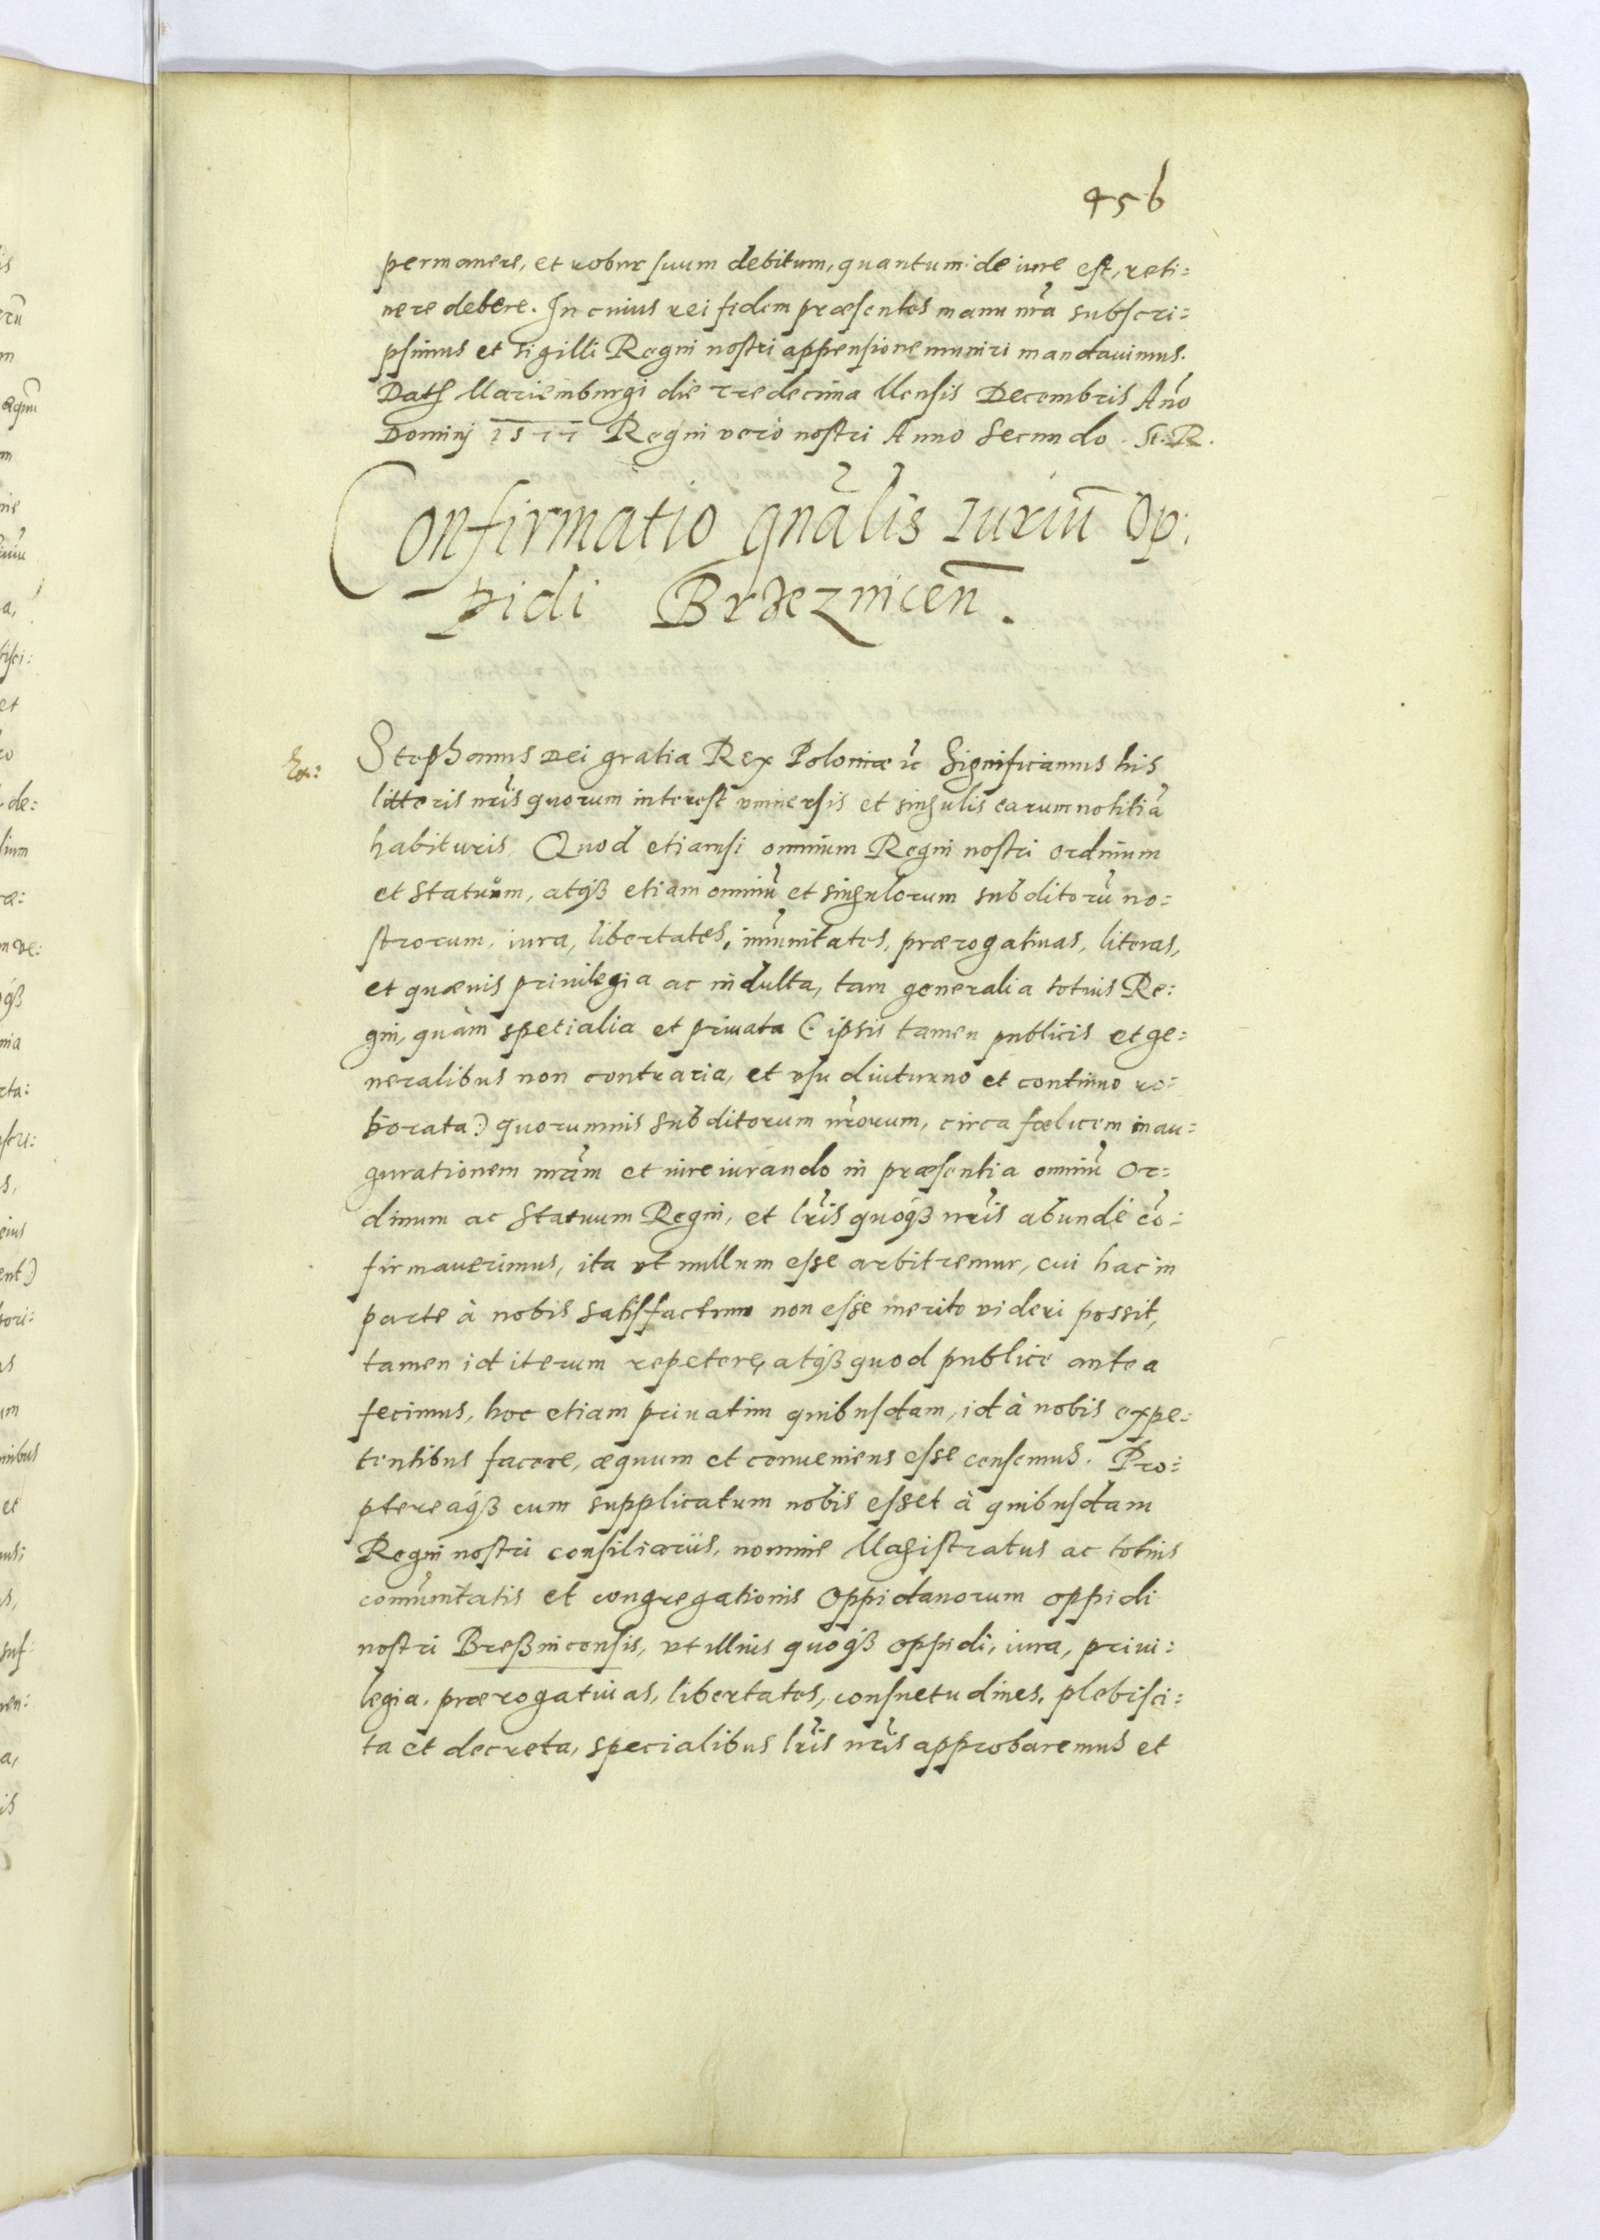 456
permanere, et robur suum debitum, quantum de iure est, reti:
nere debere. In cuius rei fidem præsentes manu nr̃a subscri:
psimus et sigilli Regni nostri appensione muniri mandauimus.
Dat Mariemburgi die tredecima Mensis Decembris Año
Dominj 1577 Regni vero nostri Anno Secundo. St. R.
Confirmatio gñalis Iuriũ Op:
pidi Brzeznicen̄.
Stephanus Dei gratia Rex Poloniæ ꝛc Significamus his
litteris nr̃is quorum interest vniuersis et singulis earum notitiã
habituris Quod etiamsi omnium Regni nostri ordinum
et Statuum, atqꝫ etiam omniũ et singulorum subditorũ no:
strorum, iura, libertates, im̃unitates, prærogatiuas, literas,
et quæuis priuilegia ac indulta, tam generalia totius Re:
gni, quàm spetialia et priuata (: ipsis tamen publicis et ge:
neralibus non contraria, et vsu diuturno et continuo ro:
borata:) quorumuis subditorum nr̃orum, circa fœlicem inau:
gurationem nr̃am et iureiurando in præsentia omniũ Or:
dinum ac Statuum Regni, et lr̃is quoqꝫ nr̃is abundè cõ:
firmauerimus, ita vt nullum esse arbitremur, cui hac in
parte à nobis satisfactum non esse merito videri possit,
tamen id iterum repetere, atqꝫ quod publice antea
fecimus, hoc etiam priuatim quibusdam, id à nobis expe:
tentibus facere, æquum et conueniens esse censemus. Pro:
ptereaqꝫ cum supplicatum nobis esset à quibusdam
Regni nostri consiliariis, nomine Magistratus ac totius
com̃unitatis et congregationis Oppidanorum oppidi
nostri Breßnicensis, vt illius quoqꝫ oppidi, iura, priui:
legia, prærogatiuas, libertates, consuetudines, plebisci:
ta et decreta, specialibus lr̃is nr̃is approbaremus et